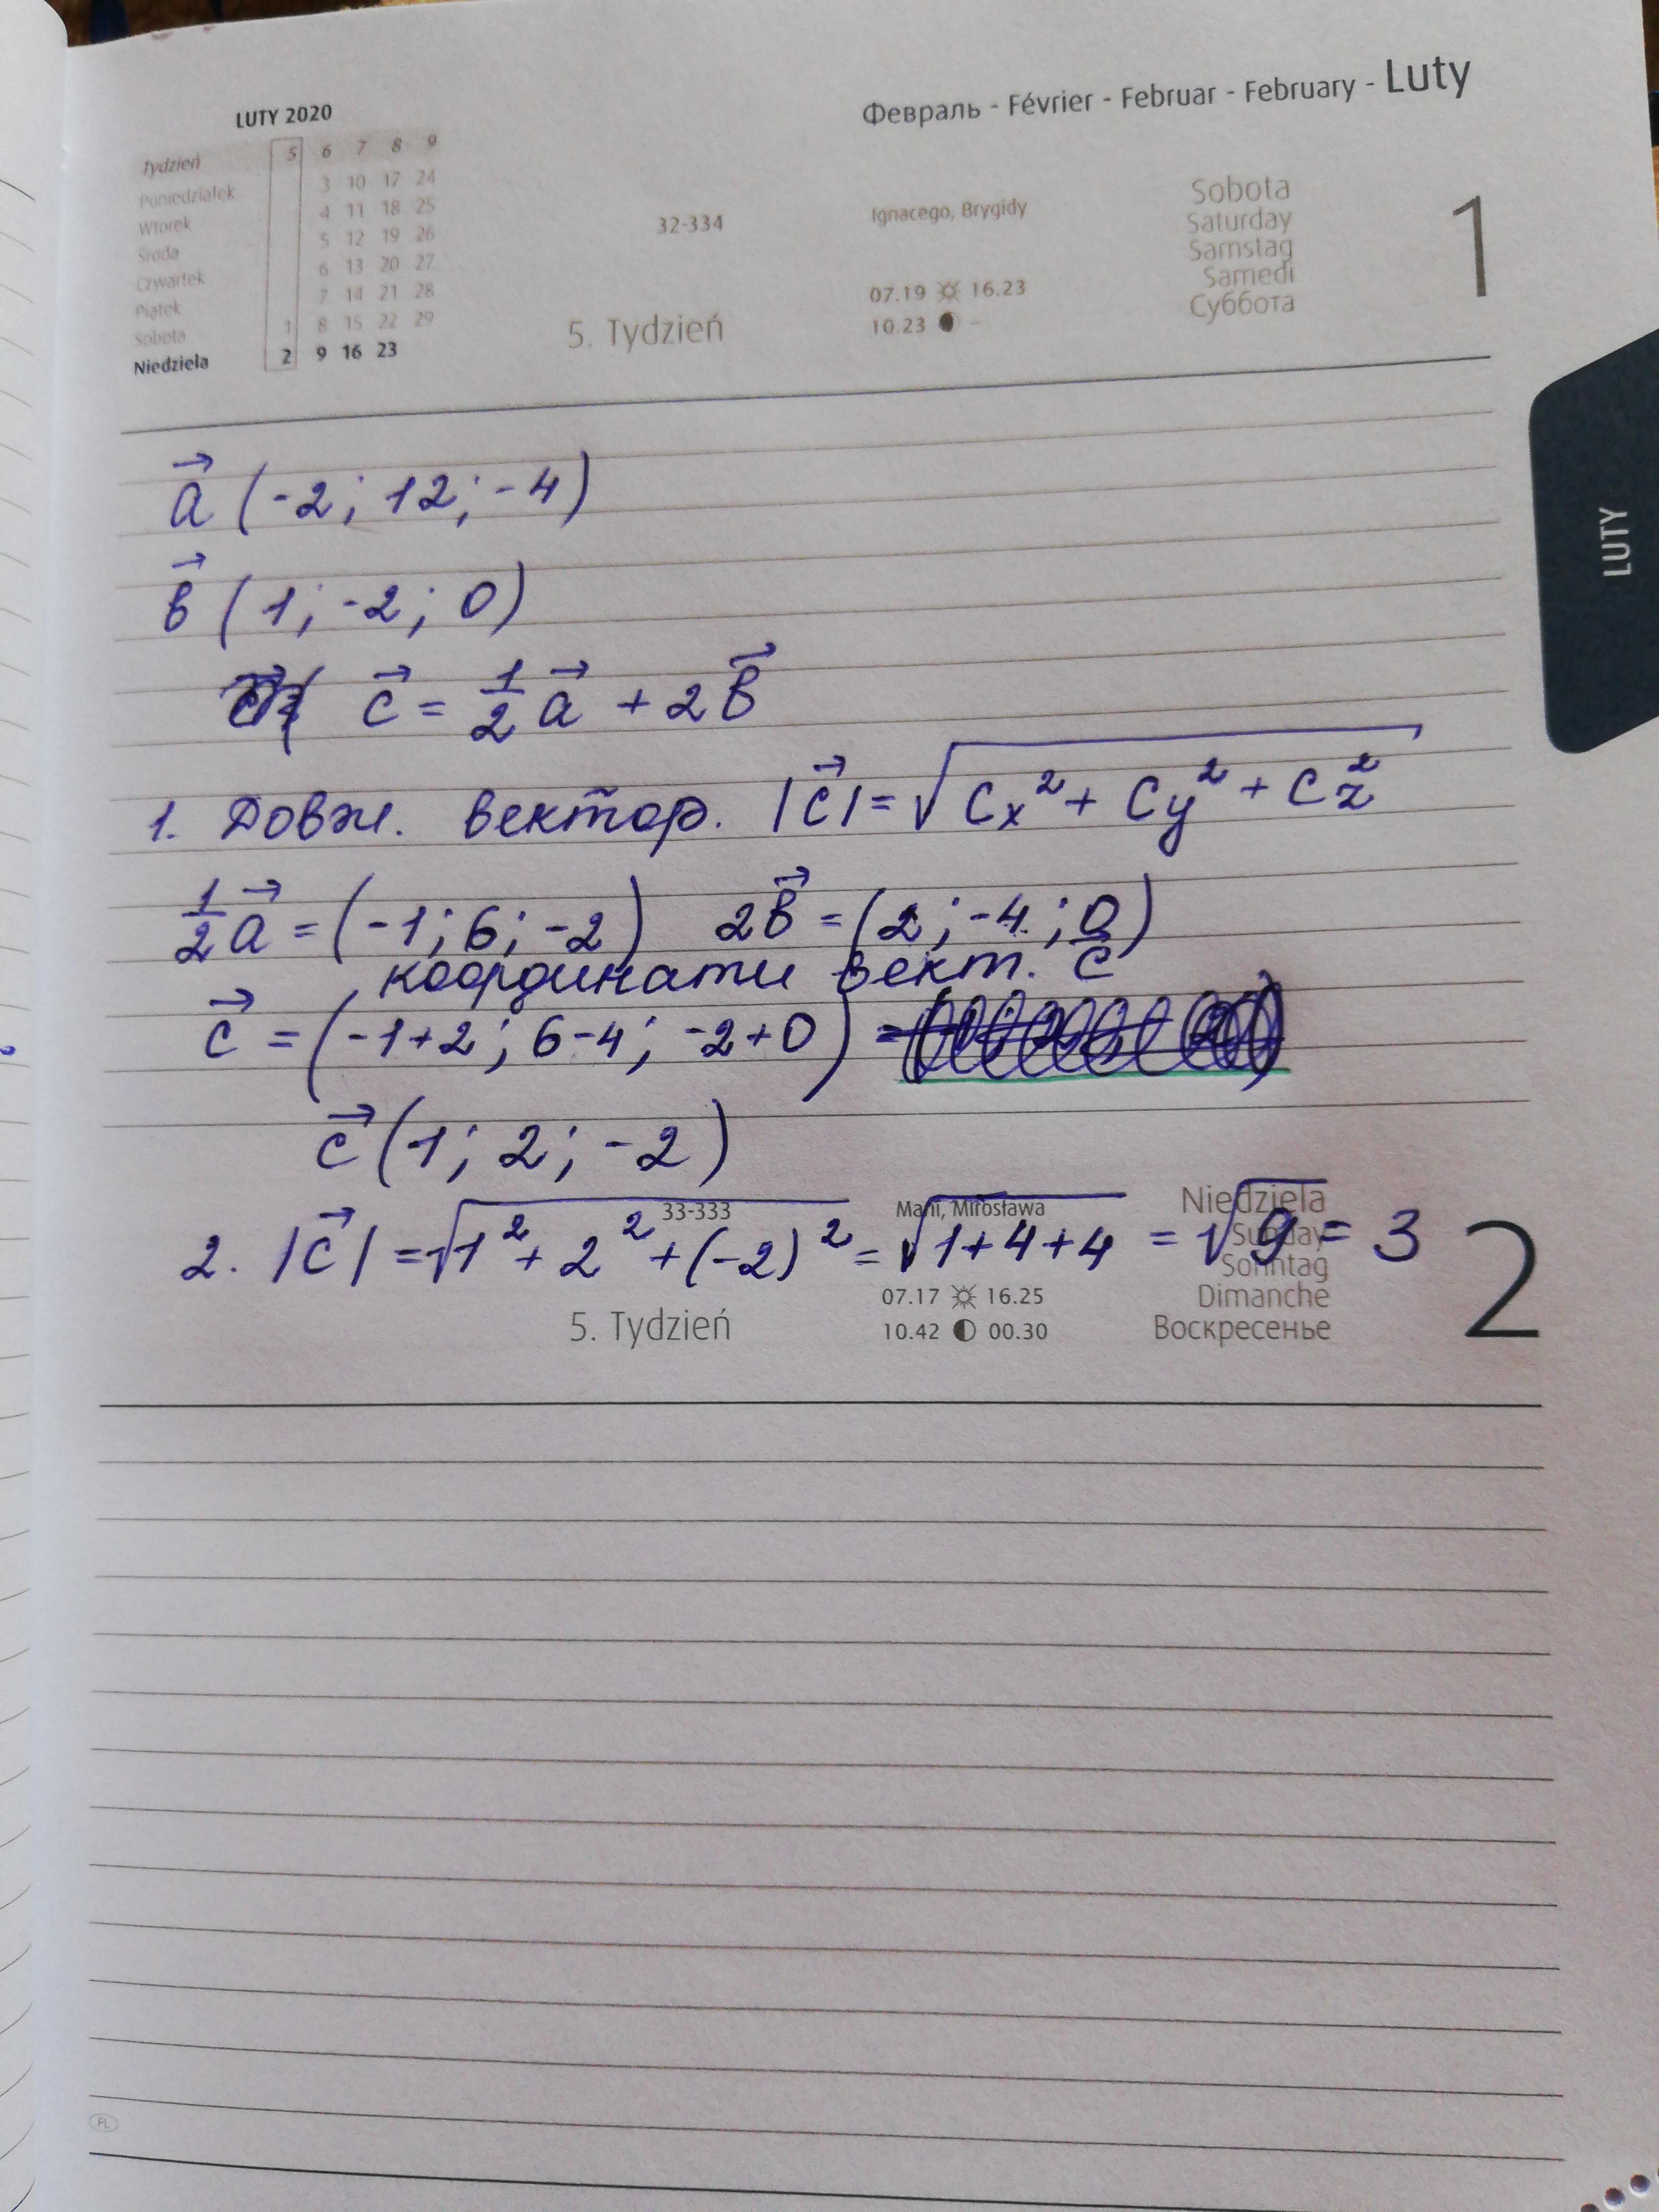 Февраль - Février - Februar - February - Luty
LUTY 2020
Tydzień 5 6 7 8 9
Poniedziałek 3 10 17 24
Wtorek 4 11 18 25
Środa 5 12 19 26
Czwartek 6 13 20 27
Piątek 7 14 21 28
Sobota 1 8 15 22 29
Niedziela 2 9 16 23
32-334
5. Tydzień
Ignacego, Brygidy
07.19 16.23
10.23 –
Sobota
Saturday
Samstag
Samedi
Суббота
1
LUTY
a⃗ (-2; 12; -4)
в⃗ (1; -2; 0)
c⃗ = 1/2 a⃗ + 2в⃗
1. Довж. вектор. |c⃗| = √(Cx² + Cy² + Cz²)
1/2 a⃗ = (-1; 6; -2) 2в⃗ = (2; -4; 0)
координати вект. c⃗
c⃗ = (-1+2; 6-4; -2+0) =
c⃗ (1; 2; -2)
2. |c⃗| = √(1² + 2² + (-2)²) = √(1+4+4) = √9 = 3
33-333
5. Tydzień
Marii, Mirosława
07.17 16.25
10.42 00.30
Niedziela
Sunday
Sonntag
Dimanche
Воскресенье
2
FL